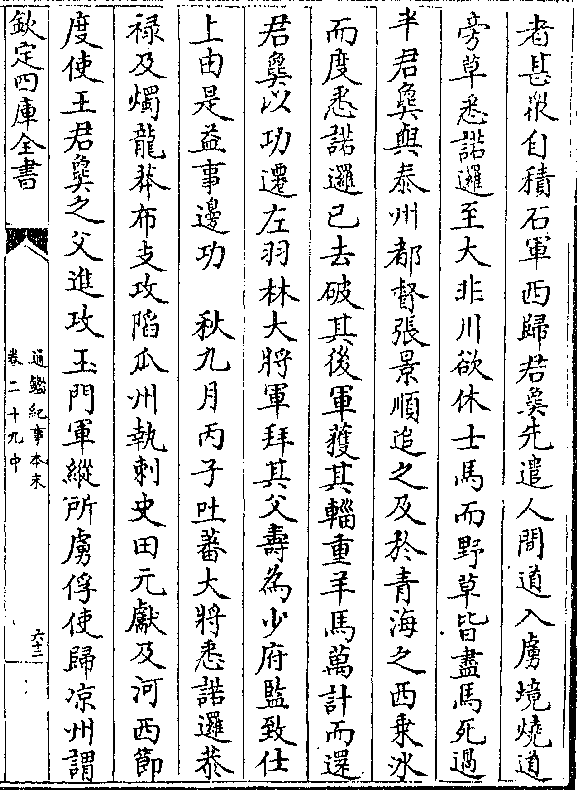 者甚衆自積石軍西歸君㚟先遣人間道入虜境燒道
旁草悉諾邏至大非川欲休士馬而野草皆盡馬死過
半君㚟與秦州都督張景順追之及於青海之西乗冰
而度悉諾邏已去破其後軍獲其輜重羊馬萬計而還
君㚟以功遷左羽林大將軍拜其父壽為少府監致仕
上由是益事邊功　秋九月丙子吐蕃大將悉諾邏恭
禄及燭龍莽布支攻陷瓜州執刺史田元獻及河西節
度使王君㚟之父進攻玉門軍縱所虜俘使歸凉州謂
欽定四庫全書
通鑑紀事本末
卷二十九中
六十二